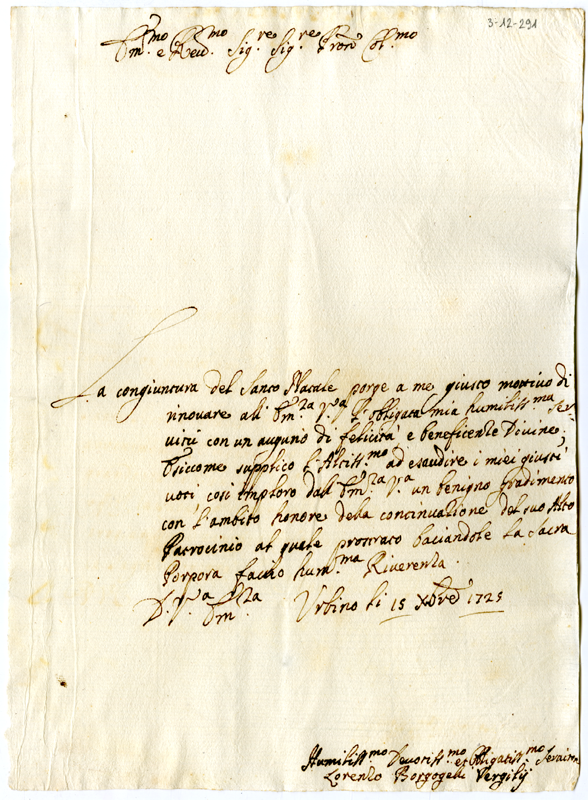 3-12-291
Em.mo e Reu.mo Sig.re Sig.re Pron Col.mo
La congiuntura del Santo Natale porge a me giusto mottivo di
rinouare all' Em.za V.ra l'obligata mia humiliss.ma Ser-
uitù con un augurio di felicità e beneficenze Diuine,
e siccome supplico l'Altiss.mo ad esaudire i miei giusti
uoti così imploro dall' Em.za V.a un benigno gradimento
con l'ambito honore della continuatione del suo Alto
Patrocinio al quale prostrato baciandole la Sacra
Porpora faccio hum.ma Riuerenza.
D. V.a Em.za Urbino li 15 Xbre 1725
Humiliss.mo Deuotiss.mo et Obligatiss.mo Seruitore
Lorenzo Borgogelli Vergilij